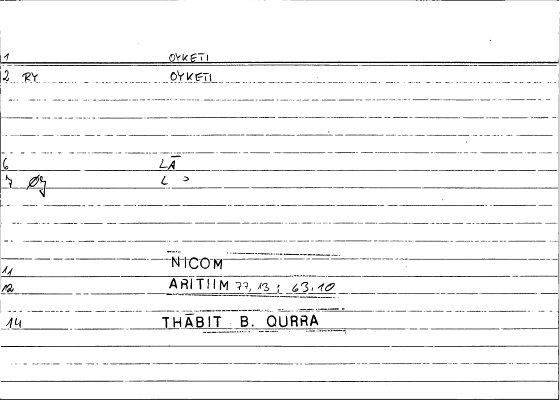 1 OYKETI
2 RY OYKETI
6 LĀ
7 L ʾ
11 NICOM
12 ARITIIM 77,13 : 63.10
14 THĀBIT B. QURRA